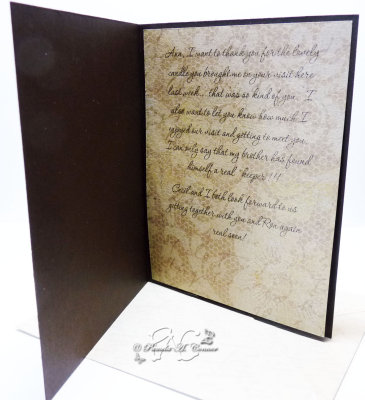 Ann, I want to thank you for the lovely
candle you brought me on your visit here
last week... that was so kind of you. I
also want to let you know how much I
enjoyed our visit and getting to meet you.
I can only say that my brother has found
himself a real "keeper"!!
Cecil and I both look forward to us
getting together with you and Ron again
real soon!
© Pamela A. Conner